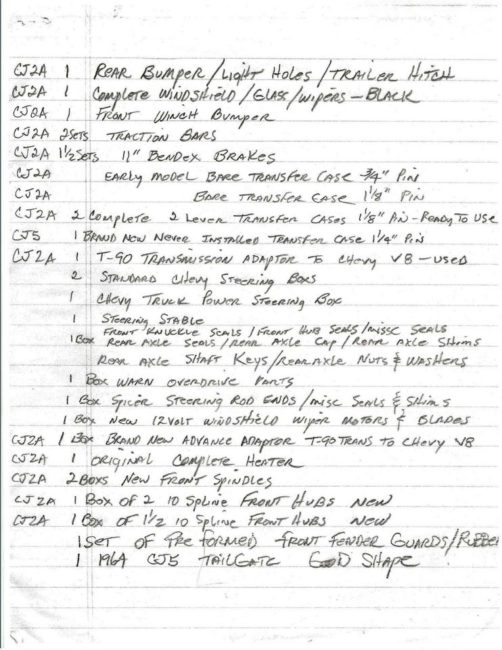 CJ2A 1 REAR BUMPER/LIGHT HOLES/TRAILER HITCH
CJ2A 1 COMPLETE WINDSHIELD/GLASS/WIPERS - BLACK
CJ2A 1 FRONT WINCH BUMPER
CJ2A 2 SETS TRACTION BARS
CJ2A 1 1/2 SETS 11" BENDEX BRAKES
CJ2A EARLY MODEL BARE TRANSFER CASE 3/4" PIN
CJ2A BARE TRANSFER CASE 1 1/8" PIN
CJ2A 2 COMPLETE 2 LEVER TRANSFER CASES 1 1/8" PIN - READY TO USE
CJ5 1 BRAND NEW NEVER INSTALLED TRANSFER CASE 1 1/4" PIN
CJ2A 1 T-90 TRANSMISSION ADAPTOR TO CHEVY V8 - USED
2 STANDARD CHEVY STEERING BOXS
1 CHEVY TRUCK POWER STEERING BOX
1 STEERING STABLE
FRONT KNUCKLE SEALS/FRONT HUB SEALS/MISSC SEALS
1 BOX REAR AXLE SEALS/REAR AXLE CAP/REAR AXLE SHIMS
REAR AXLE SHAFT KEYS/REAR AXLE NUTS & WASHERS
1 BOX WARN OVERDRIVE PARTS
1 BOX SPICER STEERING ROD ENDS/MISC SEALS & SHIMS
1 BOX NEW 12VOLT WINDSHIELD WIPER MOTORS & BLADES
CJ2A 1 BOX BRAND NEW ADVANCE ADAPTOR T-90 TRANS TO CHEVY V8
CJ2A 1 ORIGINAL COMPLETE HEATER
CJ2A 2 BOXS NEW FRONT SPINDLES
CJ2A 1 BOX OF 2 10 SPLINE FRONT HUBS NEW
CJ2A 1 BOX OF 1 1/2 10 SPLINE FRONT HUBS NEW
1 SET OF PRE FORMED FRONT FENDER GUARDS/RUBBER
1 1964 CJ5 TAILGATE GOOD SHAPE